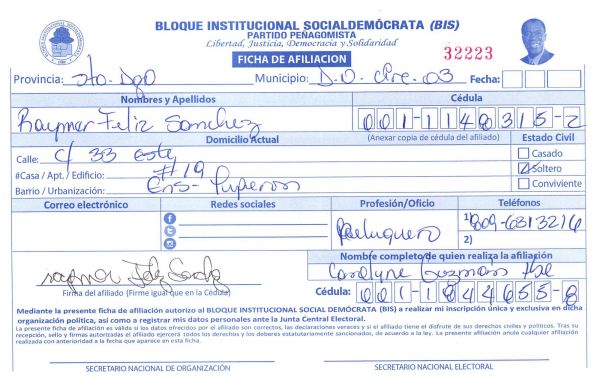 BLOQUE INSTITUCIONAL SOCIALDEMÓCRATA (BIS)
PARTIDO PEÑAGOMISTA
Libertad, Justicia, Democracia y Solidaridad
FICHA DE AFILIACION
32223
Provincia: Sto. Dgo Municipio: D.O. Circ. 03 Fecha:
Nombres y Apellidos Cédula
Raymer Feliz Sanchez 001-1140315-2
Domicilio Actual (Anexar copia de cédula del afiliado) Estado Civil
Calle: C/ 33 este Casado
#Casa / Apt. / Edificio: #19 Soltero
Barrio / Urbanización: Ens- Conviviente
Correo electrónico Redes sociales Profesión/Oficio Teléfonos
Peluquero 1) 809-6813216
2)
Nombre completo de quien realiza la afiliación
Guzman
Firma del afiliado (Firme igual que en la Cédula)
Cédula: 001-1844655-8
Mediante la presente ficha de afiliación autorizo al BLOQUE INSTITUCIONAL SOCIAL DEMÓCRATA (BIS) a realizar mi inscripción única y exclusiva en dicha
organización política, así como a registrar mis datos personales ante la Junta Central Electoral.
La presente ficha de afiliación es válida si los datos ofrecidos por el afiliado son correctos, las declaraciones veraces y si el afiliado tiene el disfrute de sus derechos civiles y políticos. Tras su
recepción, sello y firmas autorizadas el afiliado ejercerá todos los derechos y los deberes estatutariamente sancionados, de acuerdo a la ley. La presente afiliación anula cualquier afiliación
realizada con anterioridad a la fecha que aparece en esta ficha.
SECRETARIO NACIONAL DE ORGANIZACIÓN SECRETARIO NACIONAL ELECTORAL